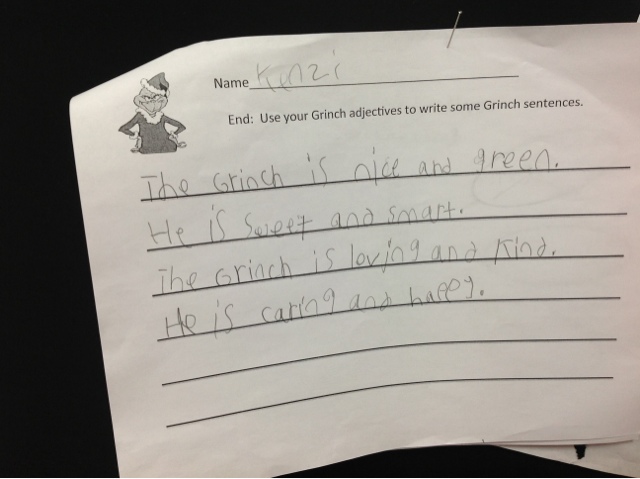 Name Kenzi
End: Use your Grinch adjectives to write some Grinch sentences.
The Grinch is nice and green.
He is sweet and smart.
The Grinch is loving and kind.
He is caring and happy.